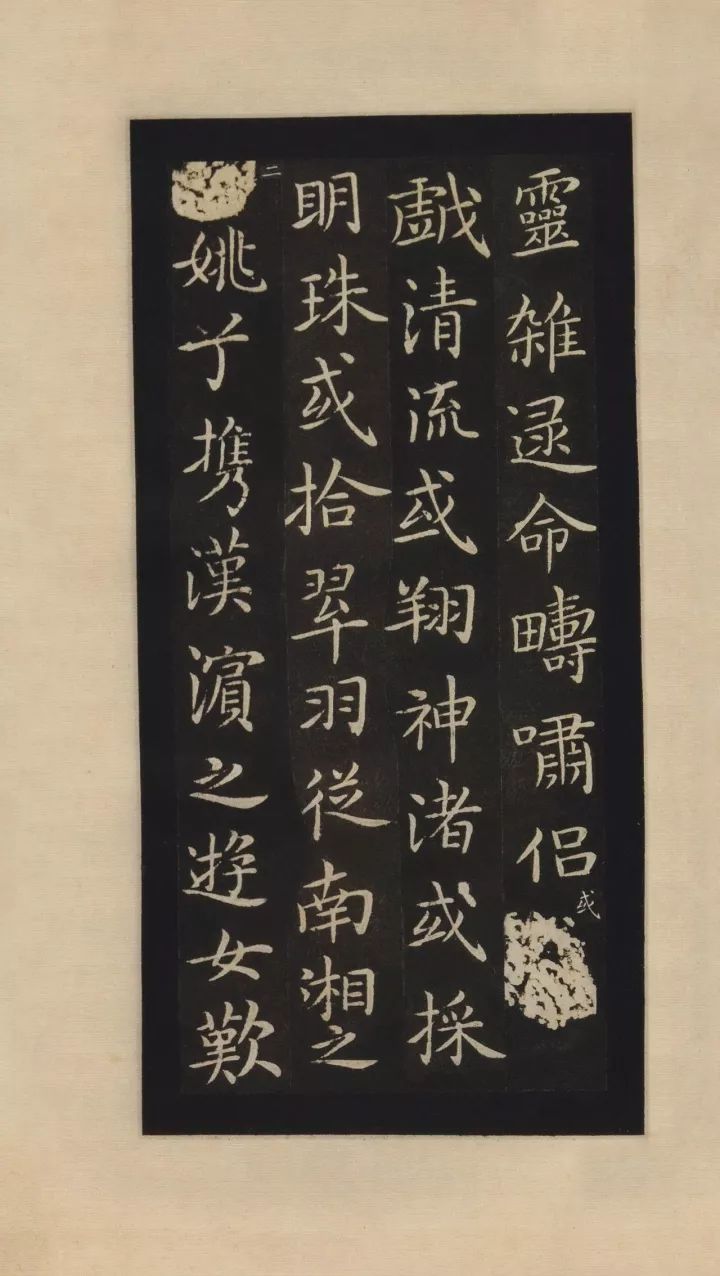 靈雑遝命疇嘯侶或
戯清流或翔神渚或採
明珠或拾翠羽従南湘之
二姚兮携漢濵之遊女歎